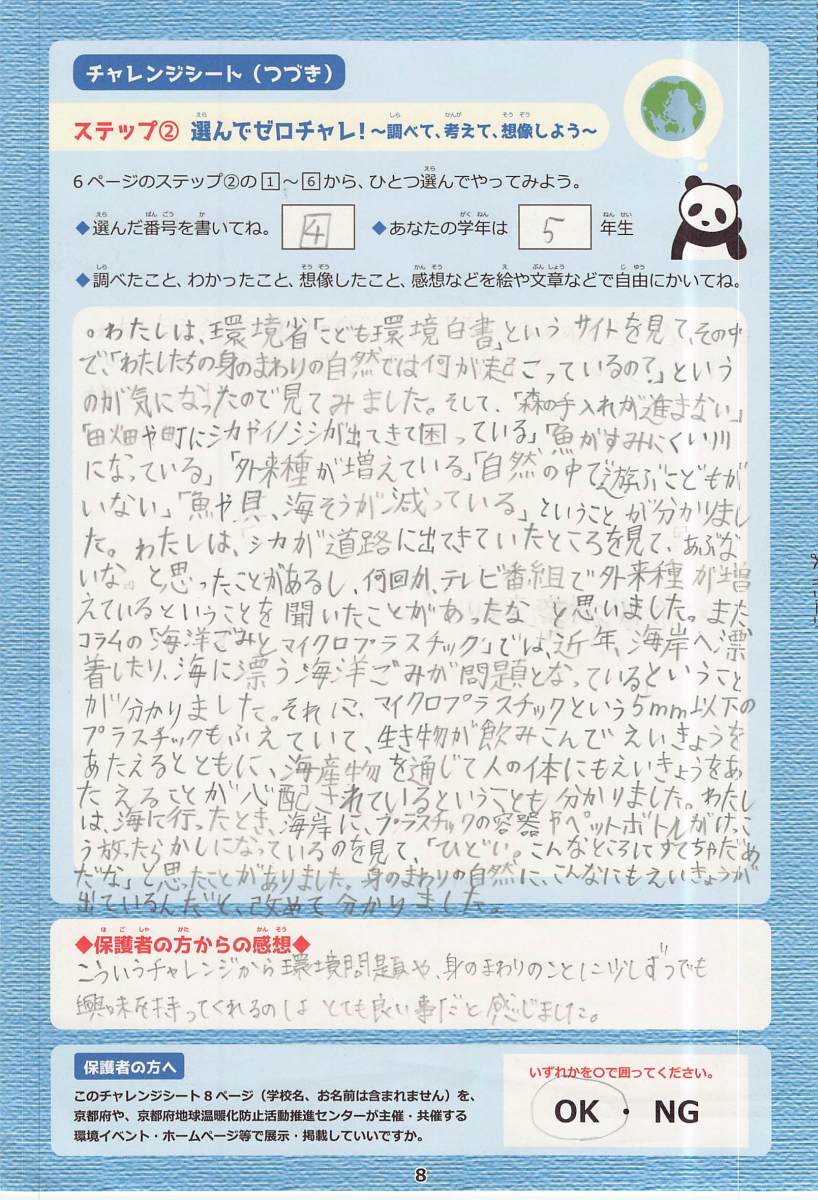 チャレンジシート（つづき）
ステップ② 選んでゼロチャレ！～調べて、考えて、想像しよう～
6ページのステップ②の1～6から、ひとつ選んでやってみよう。
◆選んだ番号を書いてね。 4 ◆あなたの学年は 5 年生
◆調べたこと、わかったこと、想像したこと、感想などを絵や文章などで自由にかいてね。
。わたしは、環境省「こども環境白書」という サイトを見て、その中
で、「わたしたちの身のまわりの自然では何が起こっているの?」という
のが気になったので見てみました。そして、「森の手入れが進まない」
「田畑や町にシカやイノシシが出てきて困っている」「魚がすみにくい川
になっている」「外来種が増えている」「自然の中で遊ぶこどもが
いない」「魚や貝、海そうが減っている」ということが分かりまし
た。わたしは、シカが道路に出てきていたところを見て、「あぶな
いな。」と思ったことがあるし、何回か、テレビ番組で外来種が増
えているということを聞いたことがあったな と思いました。また
コラムの「海洋ごみとマイクロプラスチック」では、近年、海岸へ漂
着したり、海に漂う海洋ごみが問題となっているということ
が分かりました。それに、マイクロプラスチックという5mm以下の
プラスチックもふえていて、生き物が飲みこんでえいきょうを
あたえるとともに、海産物を通じて人の体にもえいきょうをあ
たえることが心配されているということも分かりました。わたし
は、海に行ったとき、海岸に、プラスチックの容器やペットボトルがけっこ
う放ったらかしになっているのを見て、「ひどい。こんなところにすてちゃだめ
だな」と思ったことがありました。身のまわりの自然に、こんなにもえいきょうが
出ているんだと、改めて分かりました。
◆保護者の方からの感想◆
こういうチャレンジから環境問題や、身のまわりのことに少しずつでも
興味を持ってくれるのは とても良い事だと感じました。
保護者の方へ
このチャレンジシート8ページ（学校名、お名前は含まれません）を、
京都府や、京都府地球温暖化防止活動推進センターが主催・共催する
環境イベント・ホームページ等で展示・掲載していいですか。
いずれかを〇で囲ってください。
OK ・ NG
8